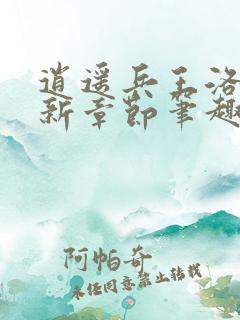 逍遥兵王洛
新章节笔趣
阿帕奇
未经同意禁止转载